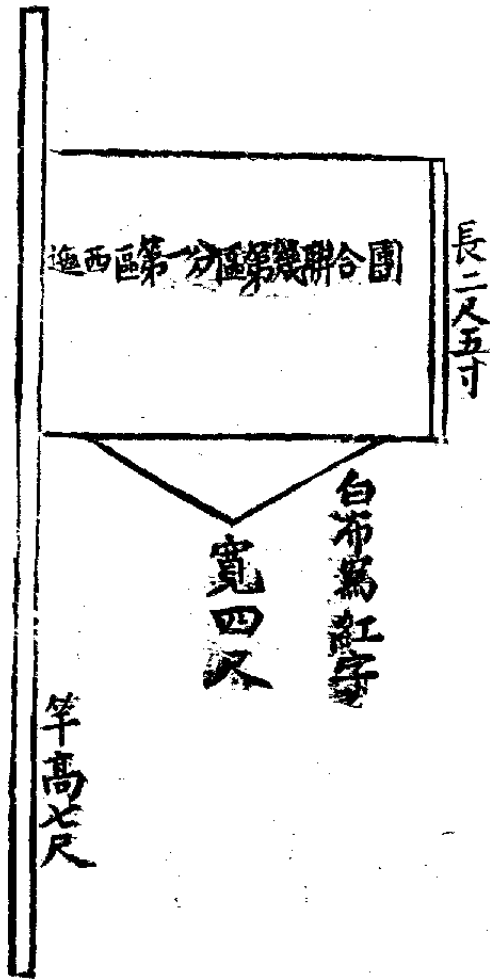 迤西區第一分區第幾聯合團
長二尺五寸
白布寫紅字
寬四尺
竿高七尺